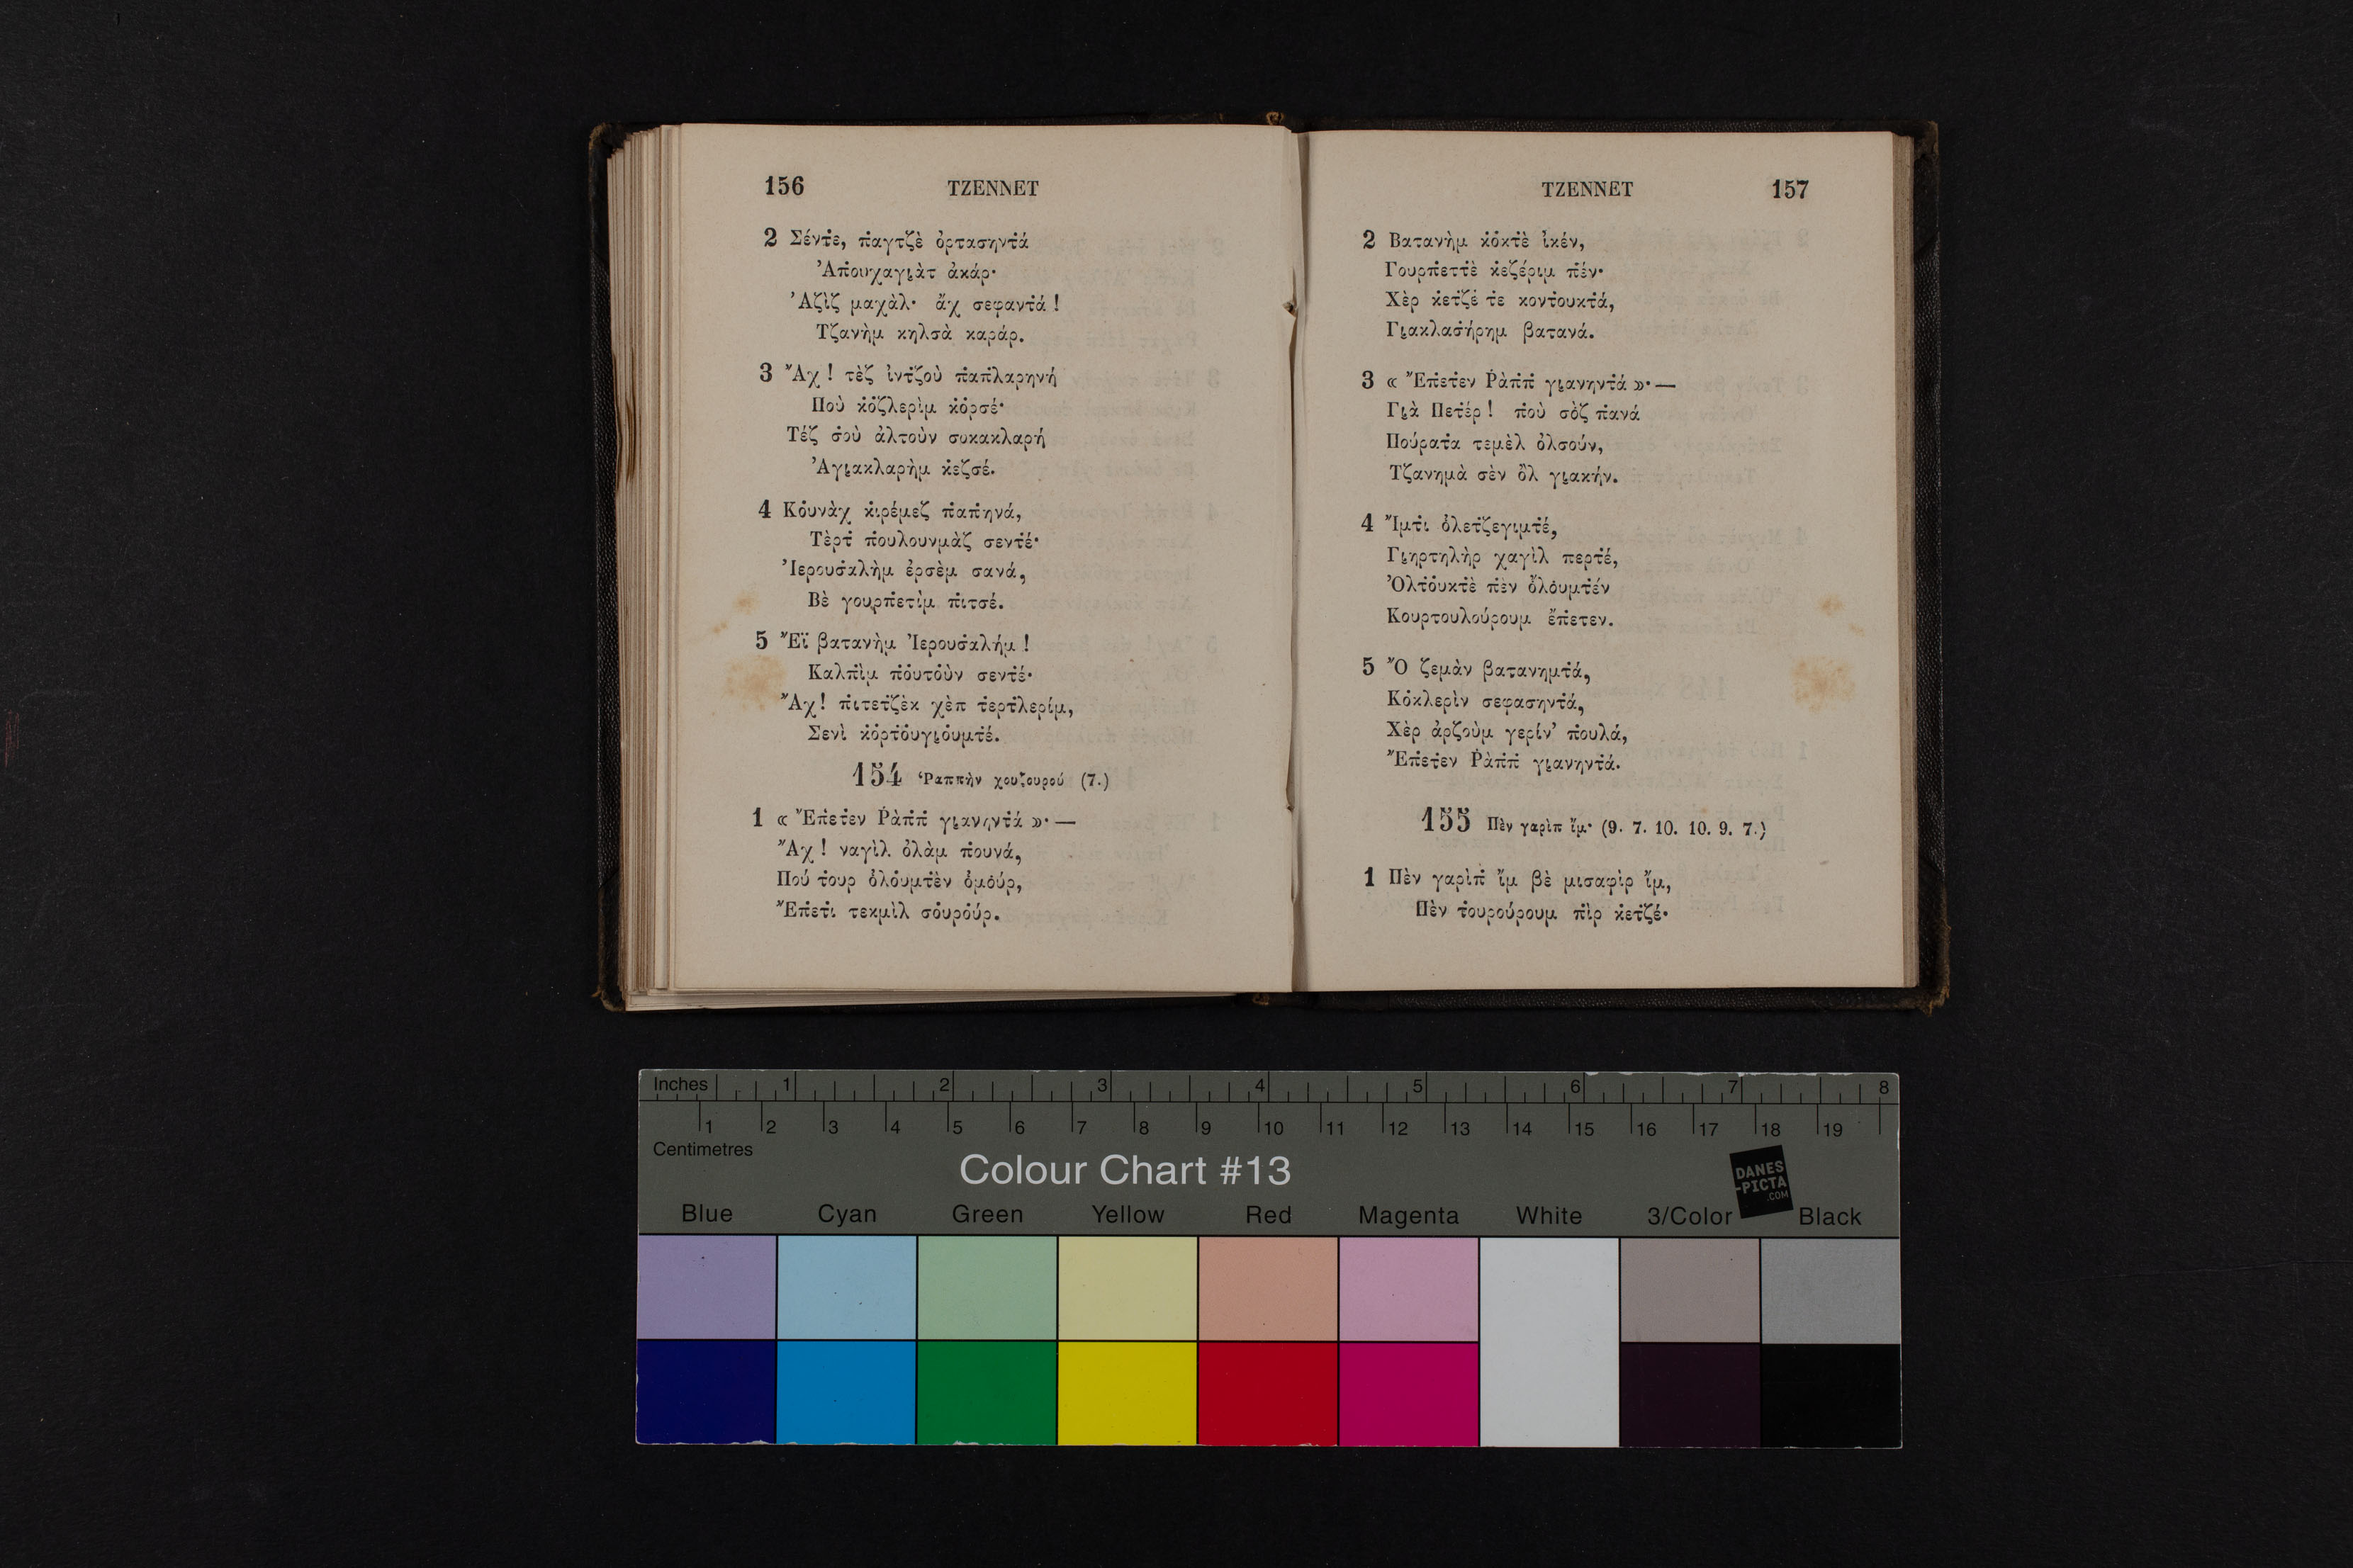 156 ΤΖΕΝΝΕΤ
2 Σέντ̇ε, π̇αγτζὲ ὀρτασηντ̇ά
Ἀπ̇ουχαγι̥ὰτ ἀκάρ·
Ἀζὶζ μαχὰλ· ἄχ σεφαντ̇ά !
Τζανὴμ κηλσὰ καράρ.
3 Ἄχ ! τὲζ ἰντζοὺ π̇απ̇λαρηνή
Π̇οὺ κ̇ο̇ζλερὶμ κ̇ο̇ρσέ·
Τέζ σ̇οὺ ἀλτοὺν συκακλαρή
Ἀγι̥ακλαρὴμ κ̇εζσέ.
4 Κ̇ο̇υνὰχ κ̇ιρέμεζ π̇απ̇ηνά,
Τ̇ὲρτ̇ π̇ουλουνμὰζ σεντ̇έ·
Ἰερουσ̇αλὴμ ἐρσὲμ σανά,
Βὲ γουρπ̇ετὶμ π̇ιτσέ.
5 Ἔϊ βατανὴμ Ἰερουσ̇αλήμ !
Καλπ̇ὶμ π̇ο̇υτο̇ὺν σεντ̇έ·
Ἄχ! π̇ιτετ̇ζὲκ χὲπ τ̇ερτ̇λερίμ,
Σενὶ κ̇ο̇ρτ̇ο̇υγι̥ο̇υμτ̇έ.
154 Ῥαππὴν χουζουρού (7.)
1 « Ἔπ̇ετ̇εν Ῥὰπ̇π̇ γι̥ανηντ̇ά »· —
Ἄχ ! ναγὶλ ὀλὰμ π̇ουνά,
Π̇ού τ̇ουρ ὀ̇λο̇υμτ̇ὲν ὀ̇μο̇ύρ,
Ἔπ̇ετ̇ι τεκμὶλ σο̇υρο̇ύρ.
ΤΖΕΝΝΕΤ 157
2 Βατανὴμ κ̇ο̇κτ̇ὲ ἰκέν,
Γουρπ̇εττ̇ὲ κ̇εζέριμ π̇έν·
Χὲρ κ̇ετ̇ζὲ τε κοντ̇ουκτ̇ά,
Γι̥ακλασ̇ήρημ βατανά.
3 « Ἔπ̇ετ̇εν Ῥὰπ̇π̇ γι̥ανηντ̇ά »· —
Γι̥ὰ Π̇ετ̇έρ ! π̇οὺ σο̇ζ π̇ανά
Π̇ούρατ̇α τεμὲλ ὀλσούν,
Τζανημὰ σὲν ὂλ γι̥ακήν.
4 Ἴμτ̇ι ὀ̇λετ̇ζεγιμτ̇έ,
Γι̥ηρτηλὴρ χαγὶλ περτ̇έ,
Ὀ̇λτ̇ο̇υκτ̇ὲ π̇ὲν ὄ̇λο̇υμτ̇έν
Κουρτουλούρουμ ἔπ̇ετεν.
5 Ὂ ζεμὰν βατανημτ̇ά,
Κ̇ο̇κλερὶν σεφασηντ̇ά,
Χὲρ ἀρζοὺμ γερίν' π̇ουλά,
Ἔπ̇ετ̇εν Ῥὰπ̇π̇ γι̥ανηντ̇ά.
155 Πὲν γαρὶπ ἴμ· (9. 7. 10. 10. 9. 7.)
1 Π̇ὲν γαρὶπ̇ ἴμ βὲ μισαφὶρ ἴμ,
Π̇ὲν τ̇ουρούρουμ π̇ὶρ κ̇ετ̇ζέ·
Inches 1 2 3 4 5 6 7 8
1 2 3 4 5 6 7 8 9 10 11 12 13 14 15 16 17 18 19
Centimetres
Colour Chart #13
DANES
-PICTA
.COM
Blue Cyan Green Yellow Red Magenta White 3/Color Black